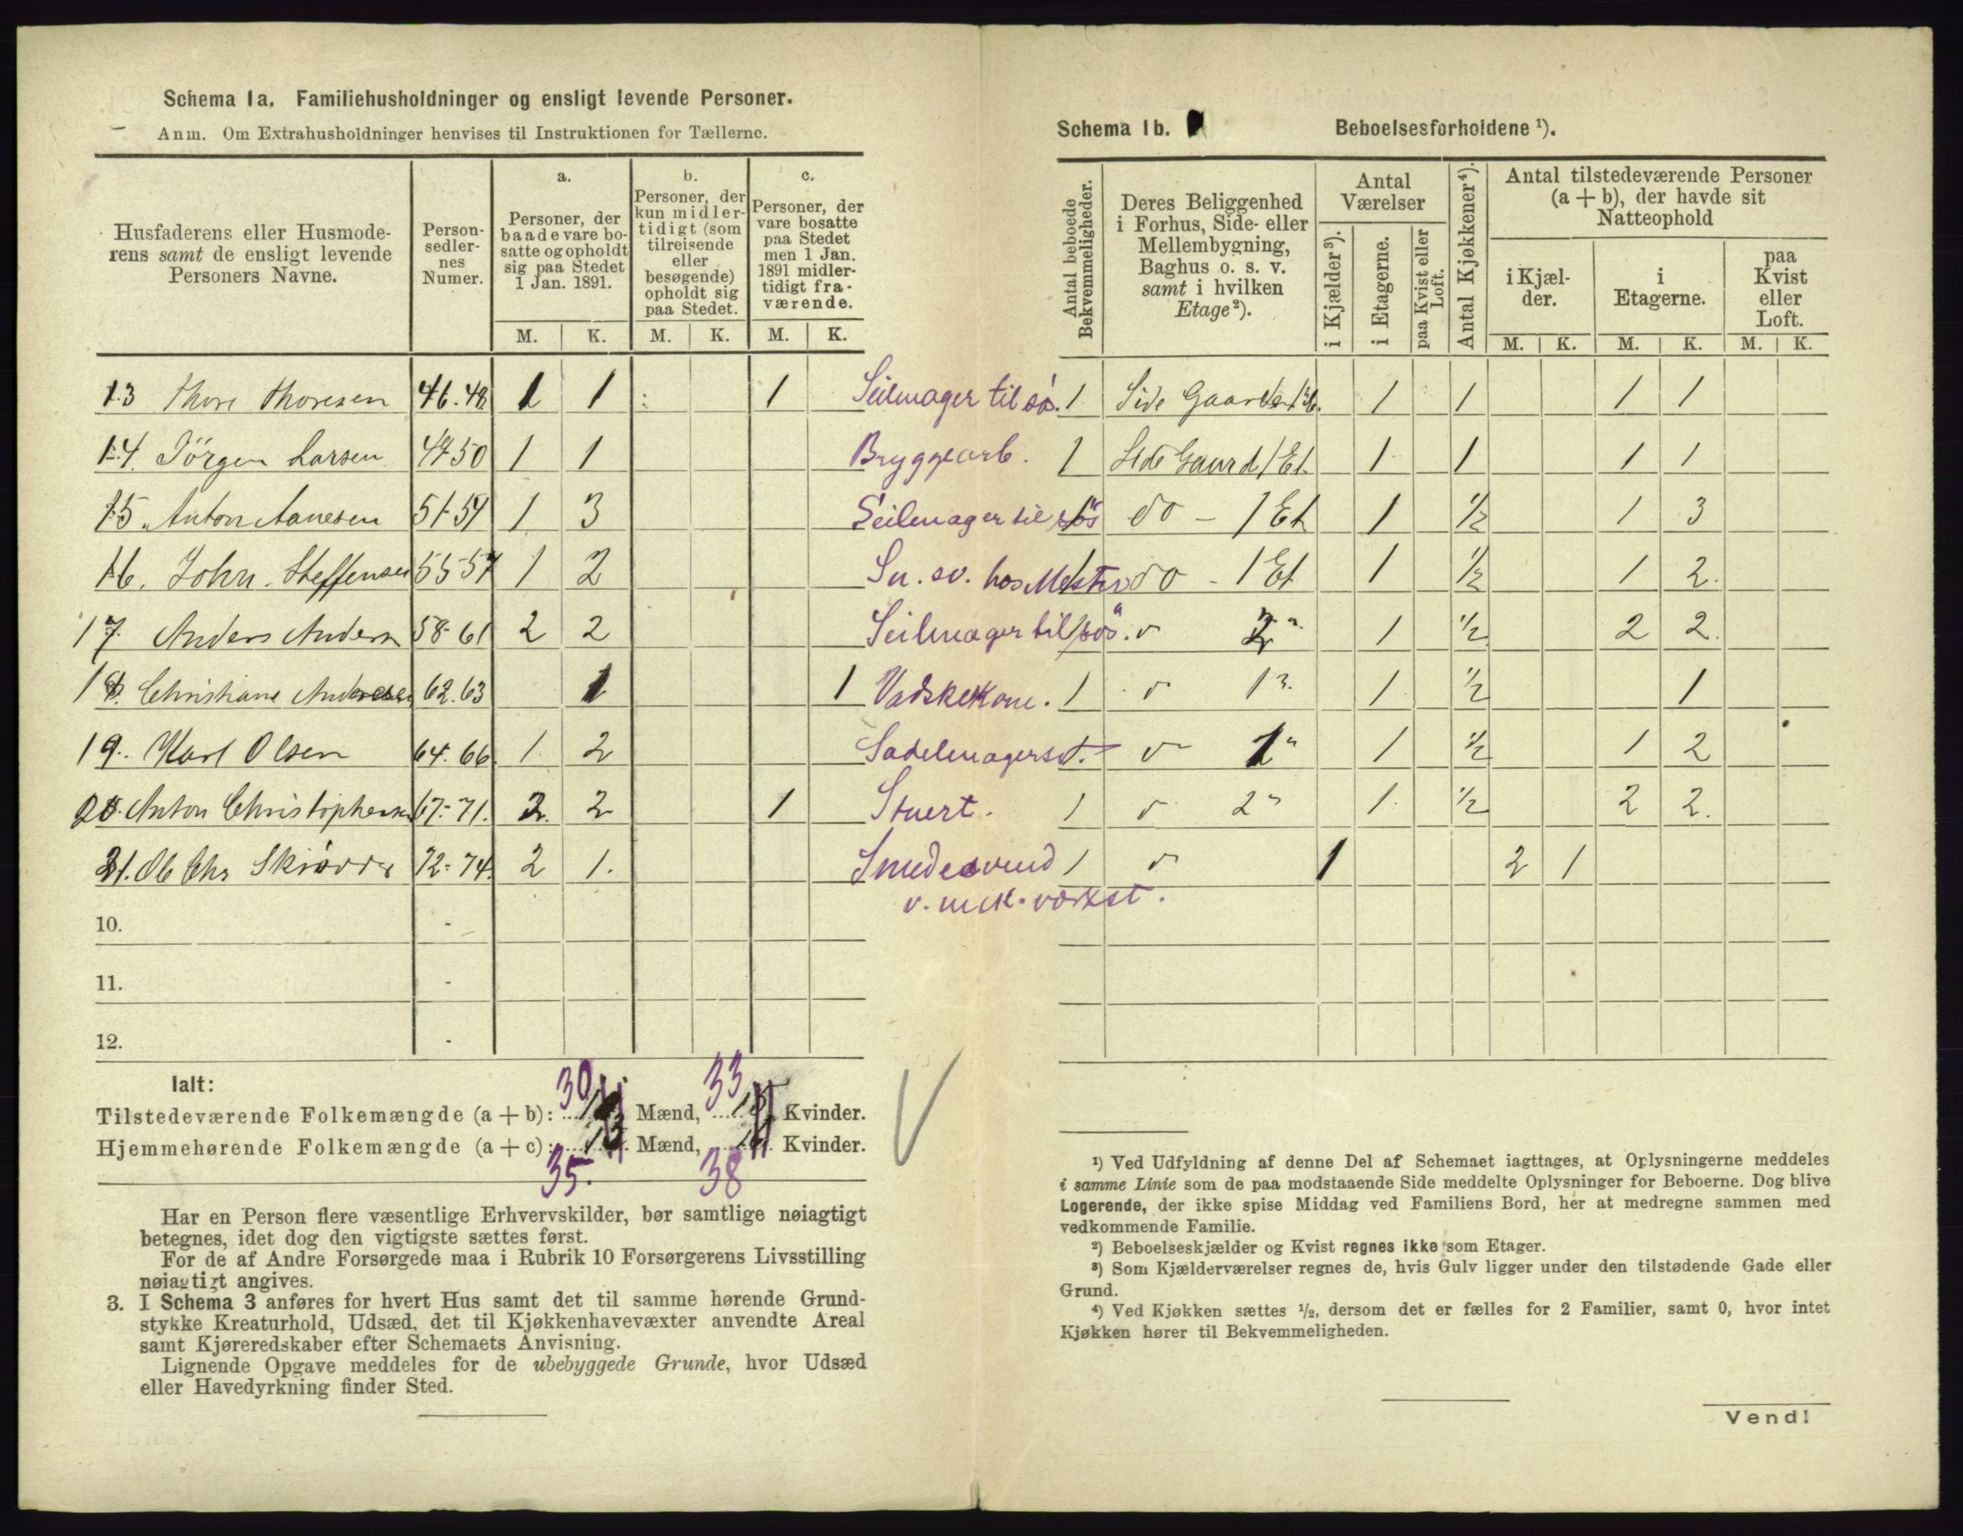 Schema 1a. Familiehusholdninger og ensligt levende Personer.
Anm. Om Extrahusholdninger henvises til Instruktionen for Tællerne.
Husfaderens eller Husmoderens samt de ensligt levende Personers Navne.
Personsedlernes Numer.
a.
Personer, der baade vare bosatte og opholdt sig paa Stedet 1 Jan. 1891.
b.
Personer, der kun midlertidigt (som tilreisende eller besøgende) opholdt sig paa Stedet.
c.
Personer, der vare bosatte paa Stedet men 1 Jan. 1891 midlertidigt fraværende.
M. K. M. K. M. K.
13 Thore Thoresen 46.48 1 1 1 Seilmager til sø.
14. Jörgen Larsen 49 50 1 1 Bryggearb.
15. Anton Aanesen 51-54 1 3 Seilmager til søs
16. John Steffensen 55-57 1 2 Sn. sv. hos Mester
17. Anders Anders 58-61 2 2 Seilmager til søs.
18. Christiane Andersen 62.63 1 1 Vaskekone.
19. Karl Olsen 64.66 1. 2 Sadelmagersv.
20. Anton Christophersen 67-71. 2. 2 1 Stuert.
21. Ole Chr 72-74. 2 1. Smedesvend
v. mek. værkst.
10. -
11. -
12. -
Ialt:
30 33
Tilstedeværende Folkemængde (a + b): Mænd, Kvinder.
Hjemmehørende Folkemængde (a + c): Mænd, Kvinder.
35. 38
Har en Person flere væsentlige Erhvervskilder, bør samtlige nøiagtigt
betegnes, idet dog den vigtigste sættes først.
For de af Andre Forsørgede maa i Rubrik 10 Forsørgerens Livsstilling
nøiagtigt angives.
3. I Schema 3 anføres for hvert Hus samt det til samme hørende Grund-
stykke Kreaturhold, Udsæd, det til Kjøkkenhavevæxter anvendte Areal
samt Kjøreredskaber efter Schemaets Anvisning.
Lignende Opgave meddeles for de ubebyggede Grunde, hvor Udsæd
eller Havedyrkning finder Sted.
Schema 1b. Beboelsesforholdene ¹).
Antal beboede Bekvemmeligheder.
Deres Beliggenhed i Forhus, Side- eller Mellembygning, Baghus o. s. v. samt i hvilken Etage²).
Antal Værelser
i Kjælder³).
i Etagerne.
paa Kvist eller Loft.
Antal Kjøkkener⁴).
Antal tilstedeværende Personer (a + b), der havde sit Natteophold
i Kjælder.
i Etagerne.
paa Kvist eller Loft.
M. K. M. K. M. K.
1 Side Gaard 1 1 1 1
1 Side Gaard 1 Et 1 1 1 1
1 do - 1 Et 1 ½ 1 3
1 do - 1 Et 1 ½ 1 2.
1 " 2 " 1 ½ 2 2.
1 " 1 " 1 ½ 1
1 " 1 " 1 ½ 1 2
1 " 2 " 1. ½ 2 2.
1 " 1 2 1
¹) Ved Udfyldning af denne Del af Schemaet iagttages, at Oplysningerne meddeles
i samme Linie som de paa modstaaende Side meddelte Oplysninger for Beboerne. Dog blive
Logerende, der ikke spise Middag ved Familiens Bord, her at medregne sammen med
vedkommende Familie.
²) Beboelseskjælder og Kvist regnes ikke som Etager.
³) Som Kjælderværelser regnes de, hvis Gulv ligger under den tilstødende Gade eller
Grund.
⁴) Ved Kjøkken sættes ½, dersom det er fælles for 2 Familier, samt 0, hvor intet
Kjøkken hører til Bekvemmeligheden.
Vend!